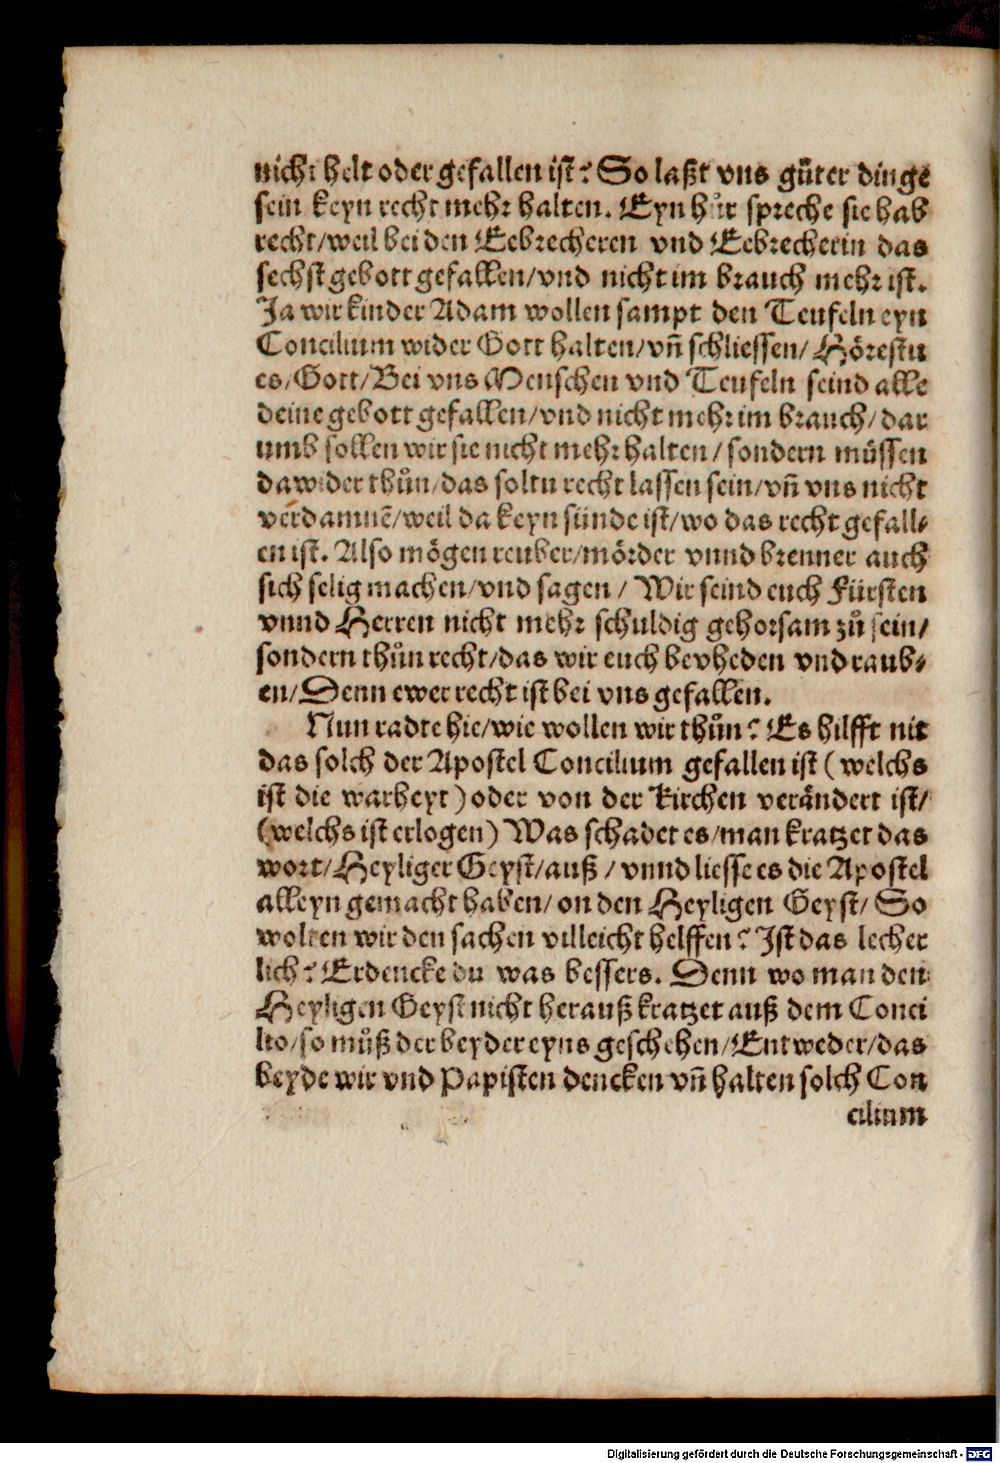 nicht helt oder gefallen ist? So laßt vns gůter dinge
sein keyn recht mehr halten. Eyn hůr spreche sie hab
recht/weil bei den Eebrecheren vnd Eebrecherin das
sechst gebott gefallen/vnd nicht im brauch mehr ist.
Ja wir kinder Adam wollen sampt den Teufeln eyn
Concilium wider Gott halten/vñ schliessen/Hörestu
es/Gott/Bei vns Menschen vnd Teufeln seind alle
deine gebott gefallen/vnd nicht mehr im brauch/dar
umb sollen wir sie nicht mehr halten/sondern müssen
dawider thůn/das soltu recht lassen sein/vñ vns nicht
verdamnē/weil da keyn sünde ist/wo das recht gefall⸗
en ist. Also mögen reuber/mörder vnnd brenner auch
sich selig machen/vnd sagen/Wir seind euch Fürsten
vnnd Herren nicht mehr schuldig gehorsam zů sein/
sondern thůn recht/das wir euch bevheden vnd raub⸗
en/Denn ewer recht ist bei vns gefallen.
Nun radte hie/wie wollen wir thůn? Es hilfft nit
das solch der Apostel Concilium gefallen ist (welchs
ist die warheyt) oder von der Kirchen verändert ist/
(welchs ist erlogen) Was schadet es/man kratzet das
wort/Heyliger Geyst/auß/vnnd liesse es die Apostel
alleyn gemacht haben/on den Heyligen Geyst/So
wolten wir den sachen villeicht helffen? Ist das lecher
lich? Erdencke du was bessers. Denn wo man den
Heyligen Geyst nicht herauß kratzet auß dem Conci
lio/so můß der beyder eyns geschehen/Entweder/das
beyde wir vnd Papisten dencken vñ halten solch Con
cilium
Digitalisierung gefördert durch die Deutsche Forschungsgemeinschaft - DFG